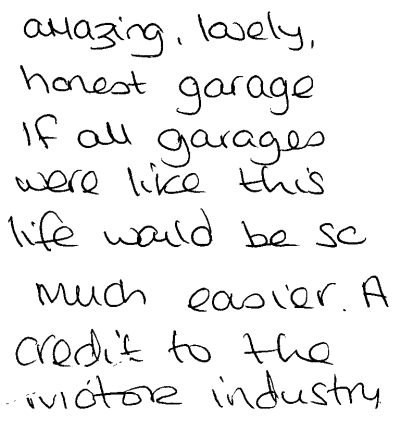 amazing, lovely,
honest garage
If all garages
were like this
life would be so
much easier. A
credit to the
motore industry